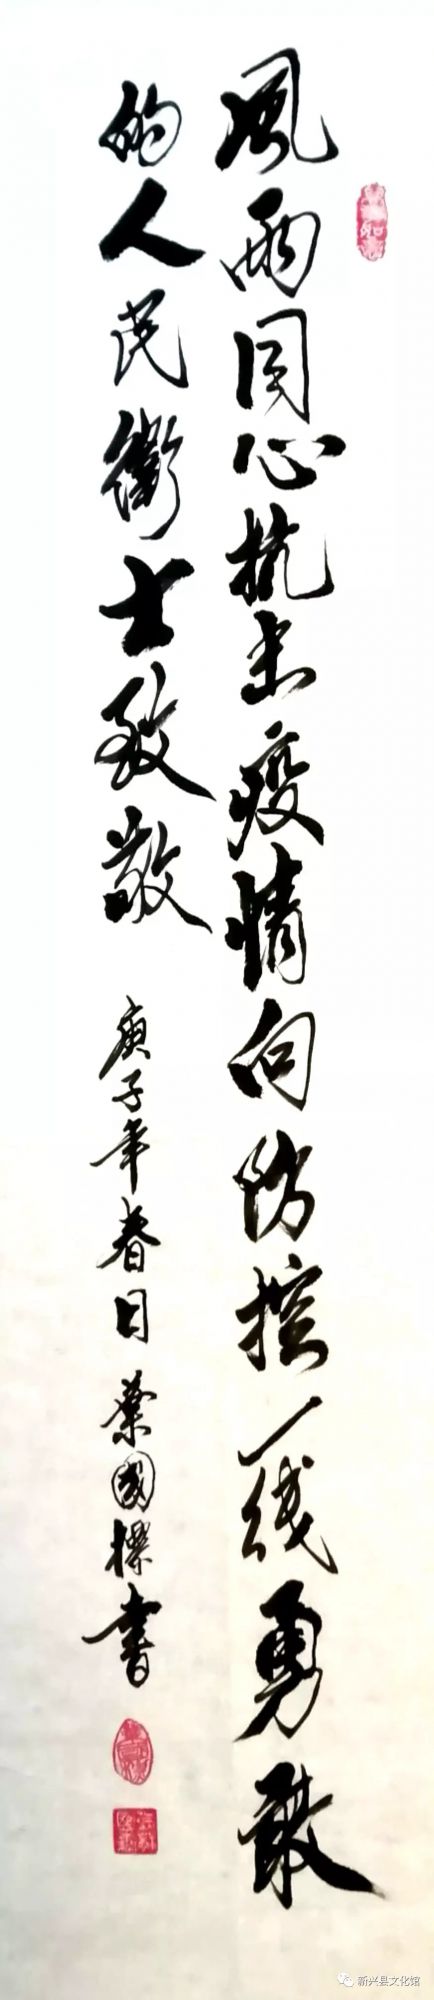 風雨同心抗击疫情向防控一线勇敢
的人民衛士致敬
庚子年春日葉國標書
新兴县文化馆